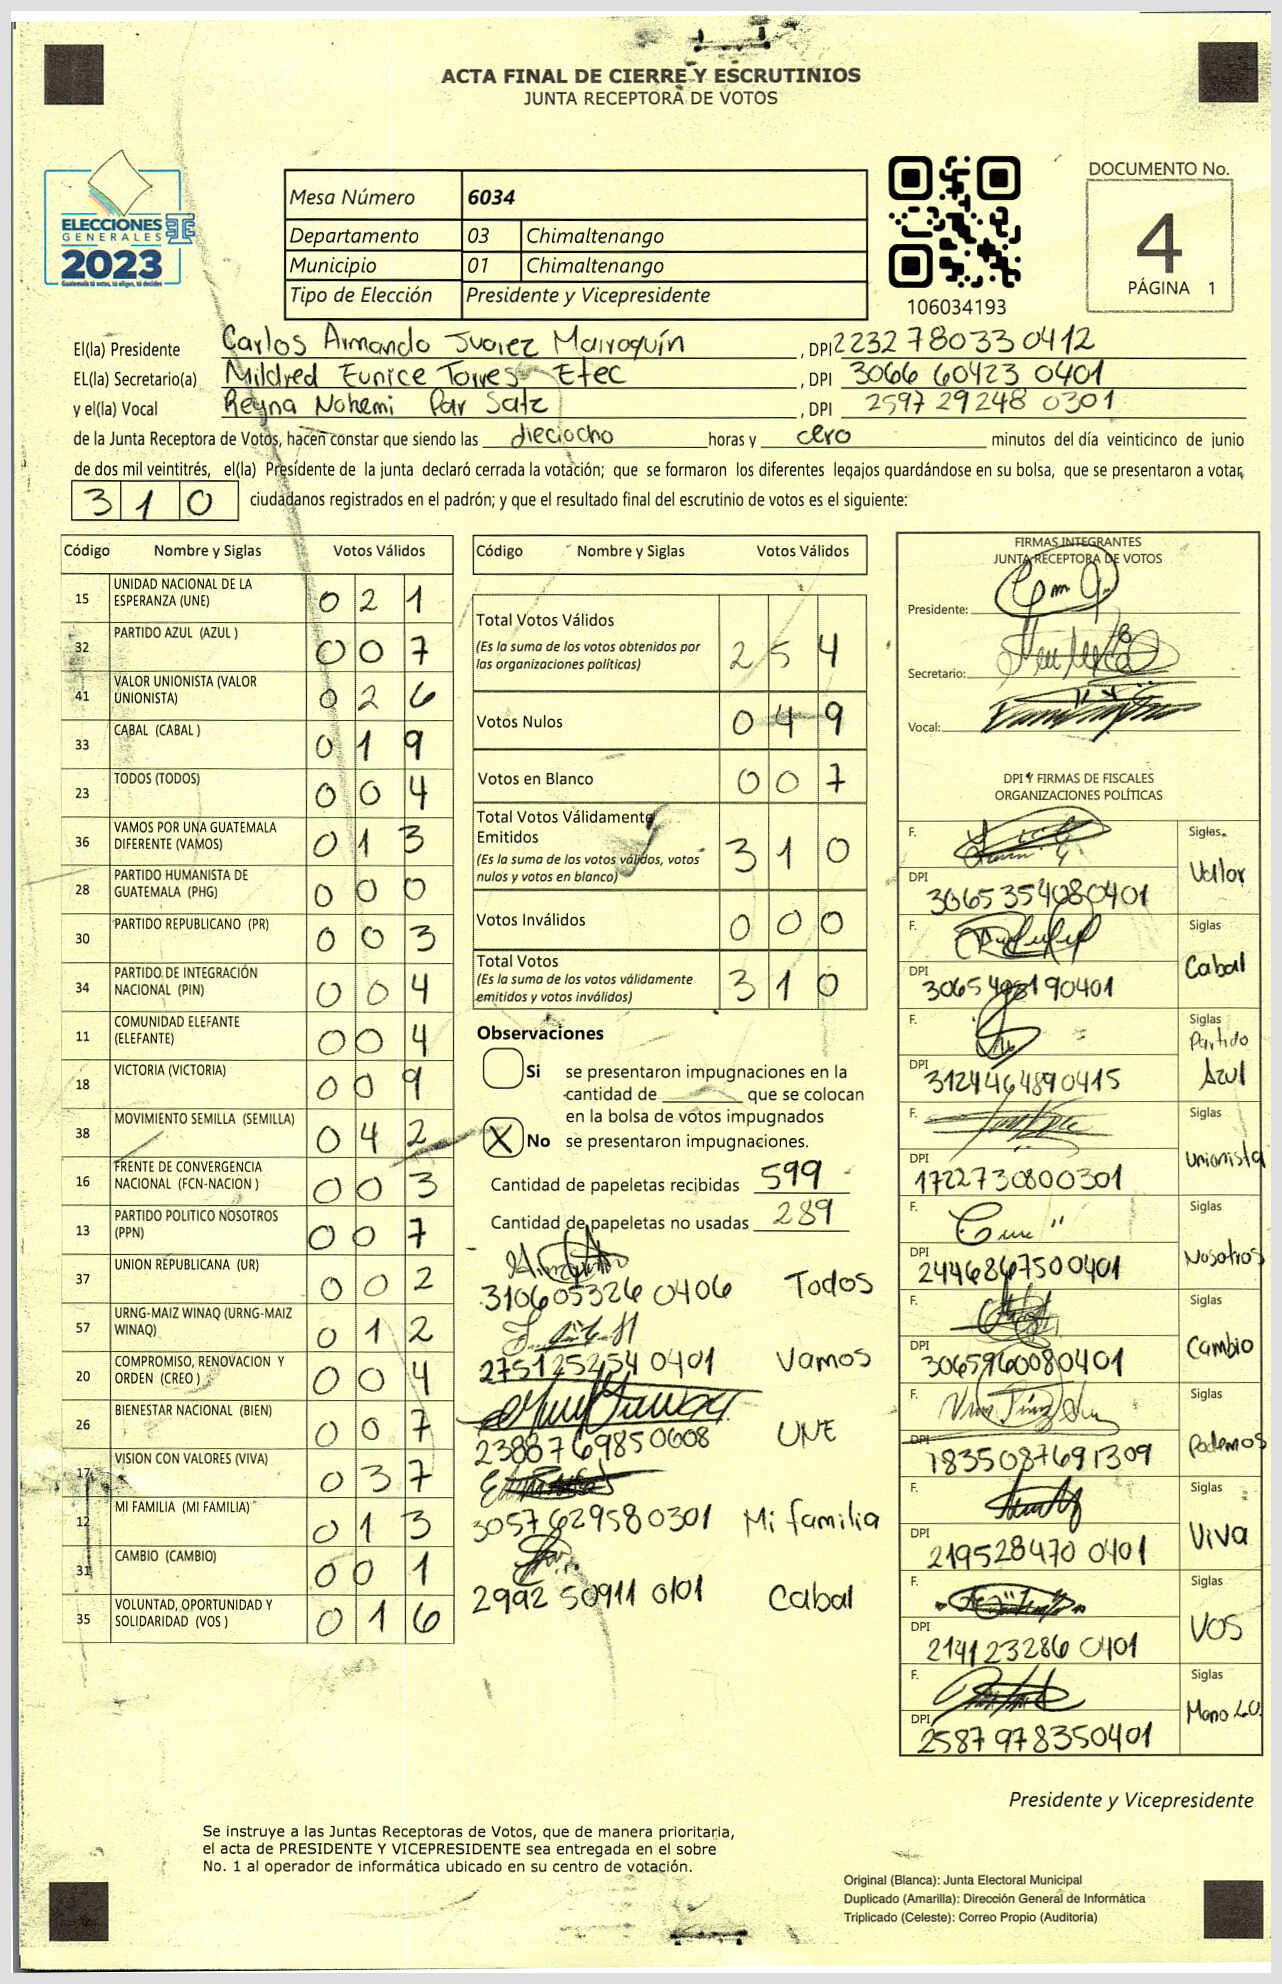 ACTA FINAL DE CIERRE Y ESCRUTINIOS
JUNTA RECEPTORA DE VOTOS
ELECCIONES
GENERALES
2023
Guatemala tú votas, tú eliges, tú decides
Mesa Número 6034
Departamento 03 Chimaltenango
Municipio 01 Chimaltenango
Tipo de Elección Presidente y Vicepresidente
106034193
DOCUMENTO No.
4
PÁGINA 1
El(la) Presidente Carlos Armando Juarez Marroquín , DPI 2232 78033 0412
EL(la) Secretario(a) Mildred Eunice Torres Etec , DPI 3066 60423 0401
y el(la) Vocal Reyna Nohemi Par Satz , DPI 2597 29248 0301
de la Junta Receptora de Votos, hacen constar que siendo las dieciocho horas y cero minutos del día veinticinco de junio
de dos mil veintitrés, el(la) Presidente de la junta declaró cerrada la votación; que se formaron los diferentes legajos guardándose en su bolsa, que se presentaron a votar,
310 ciudadanos registrados en el padrón; y que el resultado final del escrutinio de votos es el siguiente:
Código Nombre y Siglas Votos Válidos
15 UNIDAD NACIONAL DE LA ESPERANZA (UNE) 021
32 PARTIDO AZUL (AZUL ) 007
41 VALOR UNIONISTA (VALOR UNIONISTA) 026
33 CABAL (CABAL ) 019
23 TODOS (TODOS) 004
36 VAMOS POR UNA GUATEMALA DIFERENTE (VAMOS) 013
28 PARTIDO HUMANISTA DE GUATEMALA (PHG) 000
30 PARTIDO REPUBLICANO (PR) 003
34 PARTIDO DE INTEGRACIÓN NACIONAL (PIN) 004
11 COMUNIDAD ELEFANTE (ELEFANTE) 004
18 VICTORIA (VICTORIA) 009
38 MOVIMIENTO SEMILLA (SEMILLA) 042
16 FRENTE DE CONVERGENCIA NACIONAL (FCN-NACION ) 003
13 PARTIDO POLITICO NOSOTROS (PPN) 007
37 UNION REPUBLICANA (UR) 002
57 URNG-MAIZ WINAQ (URNG-MAIZ WINAQ) 012
20 COMPROMISO, RENOVACION Y ORDEN (CREO ) 004
26 BIENESTAR NACIONAL (BIEN) 007
17 VISION CON VALORES (VIVA) 037
12 MI FAMILIA (MI FAMILIA) 013
31 CAMBIO (CAMBIO) 001
35 VOLUNTAD, OPORTUNIDAD Y SOLIDARIDAD (VOS ) 016
Código Nombre y Siglas Votos Válidos
Total Votos Válidos 254
(Es la suma de los votos obtenidos por
las organizaciones políticas)
Votos Nulos 049
Votos en Blanco 007
Total Votos Válidamente
Emitidos 310
(Es la suma de los votos válidos, votos
nulos y votos en blanco)
Votos Inválidos 000
Total Votos 310
(Es la suma de los votos válidamente
emitidos y votos inválidos)
Observaciones
Si se presentaron impugnaciones en la
cantidad de ________ que se colocan
en la bolsa de votos impugnados
X No se presentaron impugnaciones.
Cantidad de papeletas recibidas 599
Cantidad de papeletas no usadas 289
310605326 0406 Todos
275125254 0401 Vamos
238876985 0608 UNE
3057629580301 Mi familia
2992 50911 0101 Cabal
FIRMAS INTEGRANTES
JUNTA RECEPTORA DE VOTOS
Presidente:
Secretario:
Vocal:
DPI Y FIRMAS DE FISCALES
ORGANIZACIONES POLÍTICAS
F. Siglas
DPI 3065354080401 Vallor
F. Siglas
DPI 3065498190401 Cabal
F. Siglas
DPI 3124464890415 Partido Azul
F. Siglas
DPI 1722730800301 Unionista
F. Siglas
DPI 2446867500401 Nosotros
F. Siglas
DPI 3065960080401 Cambio
F. Siglas
DPI 1835087691309 Podemos
F. Siglas
DPI 219528470 0401 ViVa
F. Siglas
DPI 214123286 0401 VOS
F. Siglas
DPI 2587978350401 Mano
Presidente y Vicepresidente
Se instruye a las Juntas Receptoras de Votos, que de manera prioritaria,
el acta de PRESIDENTE Y VICEPRESIDENTE sea entregada en el sobre
No. 1 al operador de informática ubicado en su centro de votación.
Original (Blanca): Junta Electoral Municipal
Duplicado (Amarilla): Dirección General de Informática
Triplicado (Celeste): Correo Propio (Auditoría)